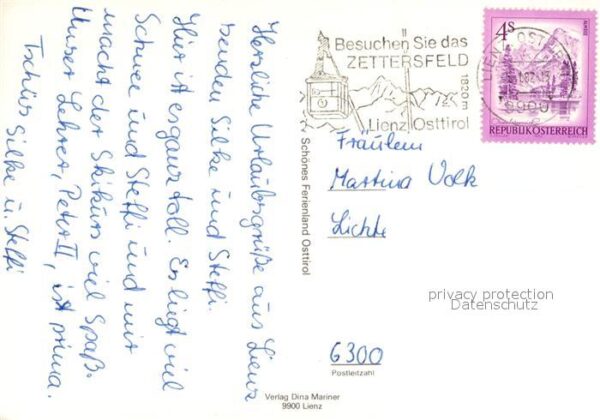 Herzliche Urlaubsgrüße aus Lienz
senden Silke und Steffi.
Hier ist es ganz toll. Es liegt viel
Schnee und Steffi und mir
macht der Skikurs viel Spaß.
Unser Lehrer, Peter II, ist prima.
Tschüss Silke u. Steffi
Schönes Ferienland Osttirol
Verlag Dina Mariner
9900 Lienz
Besuchen Sie das
ZETTERSFELD
1820 m
Lienz Osttirol
LIENZ OSTTIROL
9900
4 S
REPUBLIK ÖSTERREICH
Fräulein
Martina Volk
6300
Postleitzahl
privacy protection
Datenschutz